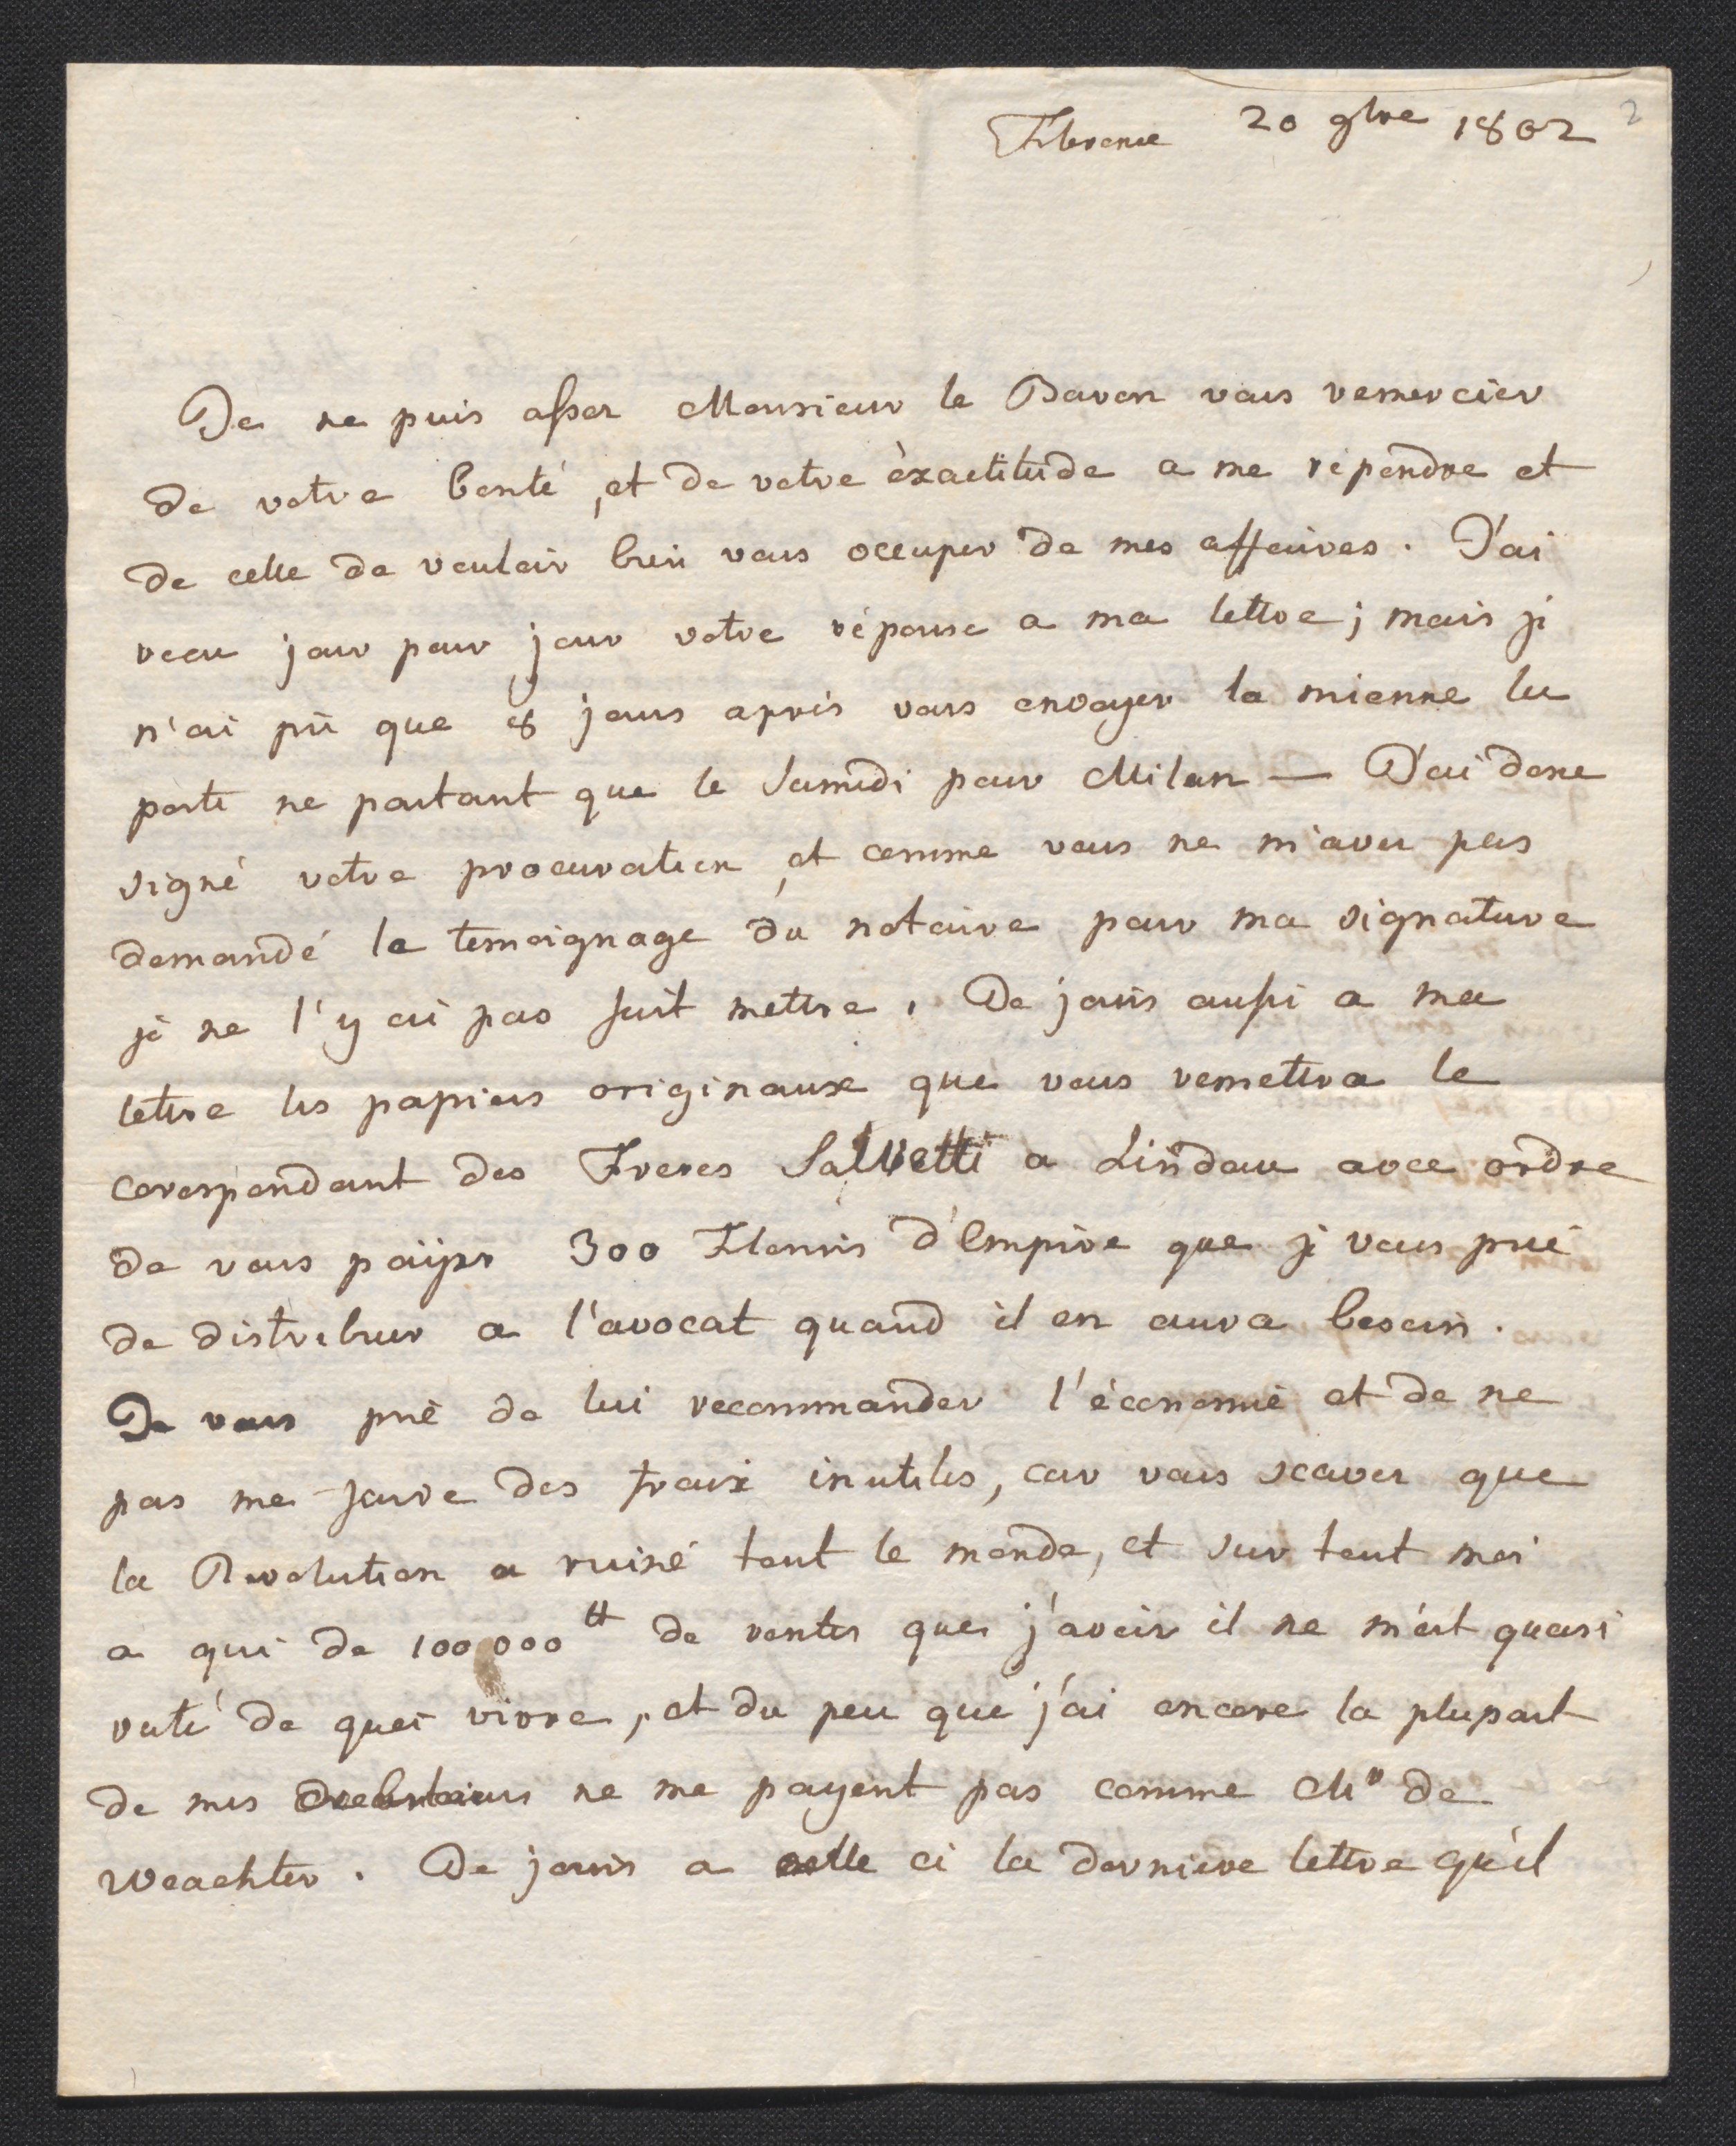 Florence 20 9bre 1802 2
Je ne puis assez Monsieur le Baron vous remercier
de votre bonté, et de votre èxactitude a me rèpondre et
de celle de vouloir bien vous occuper de mes affaires. J'ai
recu jour pour jour votre réponse a ma lettre; mais je
n'ai pû que 8 jours après vous envoyer la mienne la
poste ne partant que le Samedi pour Milan — J'ai donc
signé votre procuration, et comme vous ne m'avez pas
demandé le temoignage du notaire pour ma signature
je ne l'y ai pas fait mettre. Je joins aussi a ma
lettre les papiers originaux que vous remettra le
corespondant des Freres Salvetti a Lindau avec ordre
de vous païjer 300 Florins d'Empire que je vous prie
de distribuer a l'avocat quand il en aura besoin.
Je vous prie de lui recommander l'économie et de ne
pas me faire des fraix inutiles, car vous scavez que
la Revolution a ruiné tout le monde, et sur tout moi
a qui de 100000 ₶ de rentes que j'avois il ne m'est quasi
resté de quoi vivre, et du peu que j'ai encore la plupart
de mes debiteurs ne me payent pas comme Mr de
Weachter. Je joins a celle ci la derniere lettre qu'il